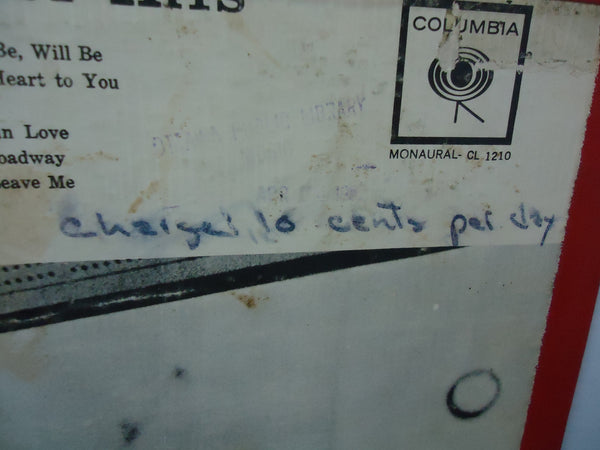 HITS
COLUMBIA
Be, Will Be
Heart to You
in Love
oadway
Leave Me
MONAURAL- CL 1210
LIBRARY
charges 10 cents per day